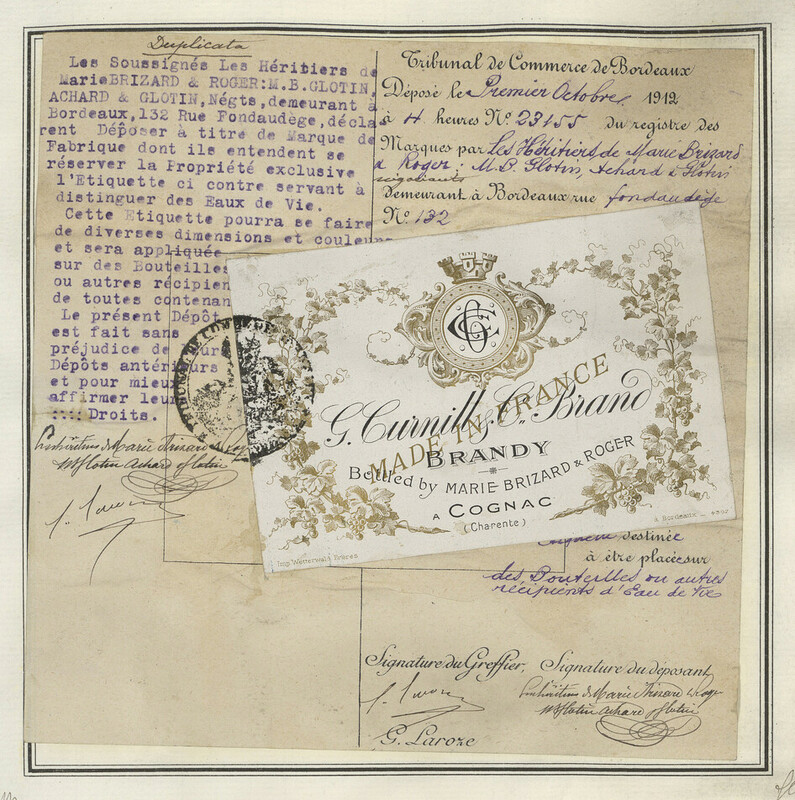 Duplicata
Les Soussignés Les Héritiers de
MarieBRIZARD & ROGER:M.B.GLOTIN,
ACHARD & GLOTIN,Négts,demeurant à
Bordeaux,132 Rue Fondaudège,décla
rent Déposer à titre de Marque de
Fabrique dont ils entendent se
réserver la Propriété exclusive
l'Etiquette ci contre servant à
distinguer des Eaux de Vie.
Cette Etiquette pourra se faire
de diverses dimensions et couleurs
et sera appliquée
sur des Bouteilles
ou autres récipien
de toutes contenan
Le présent Dépôt
est fait sans
préjudice de
Dépôts antérieurs
et pour mieux
affirmer leurs
:::: Droits.
Les héritiers de Marie Brizard & Roger
MB Glotin Achard & Glotin
Tribunal de Commerce de Bordeaux
Déposé le Premier Octobre 1912
à 4 heures N° 23155 du registre des
Marques par Les Héritiers de Marie Brizard
& Roger : M.B. Glotin, Achard & Glotin
négociants
Demeurant à Bordeaux rue fondaudège
N° 132
G. Curnill & C° Brand
MADE IN FRANCE
BRANDY
Bottled by MARIE BRIZARD & ROGER
A COGNAC
(Charente)
Imp. Wetterwald Frères
à Bordeaux
destinée
à être placée sur
des Bouteilles ou autres
récipients d'Eau de Vie
Signature du Greffier, Signature du déposant
Les héritiers de Marie Brizard & Roger
MB Glotin Achard & Glotin
G. Laroze